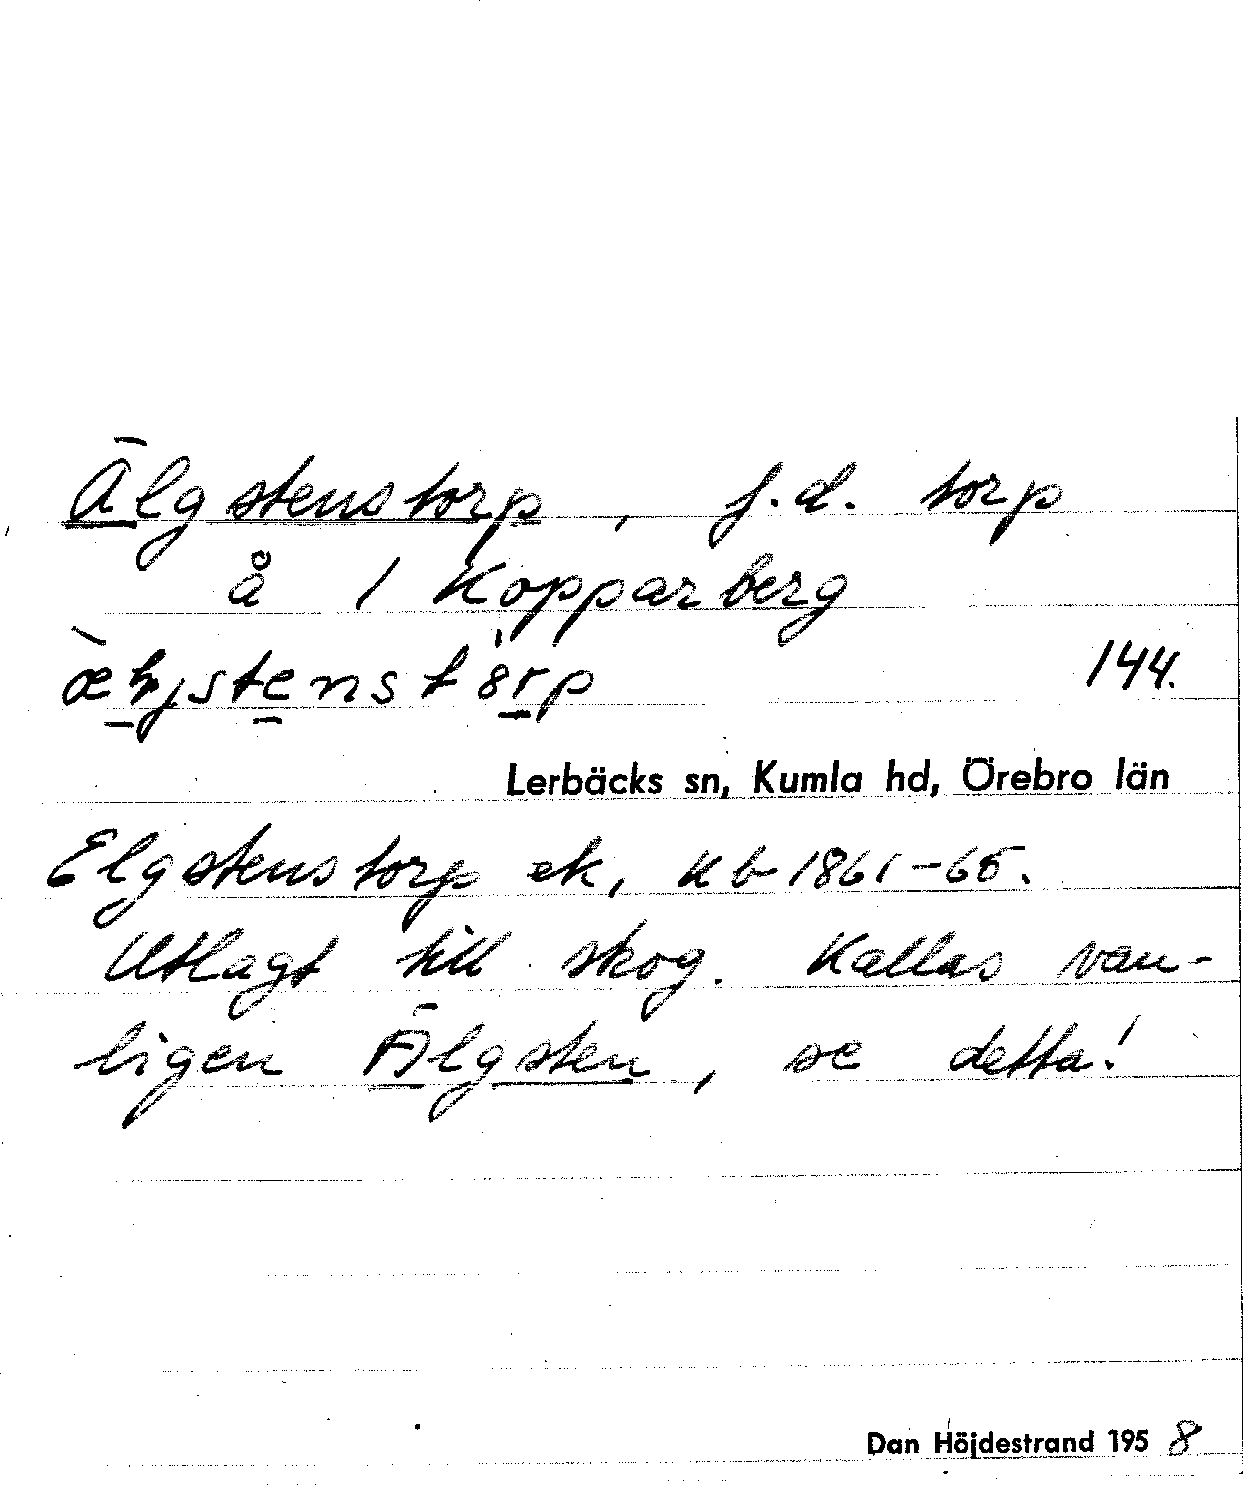 Älgstenstorp, f.d. torp
å 1 Kopparberg
144.
Lerbäcks sn, Kumla hd, Örebro län
Elgstenstorp ek, Kb 1861-65.
Utlagt till skog. Kallas van-
ligen Älgsten, se detta!
Dan Höjdestrand 1958